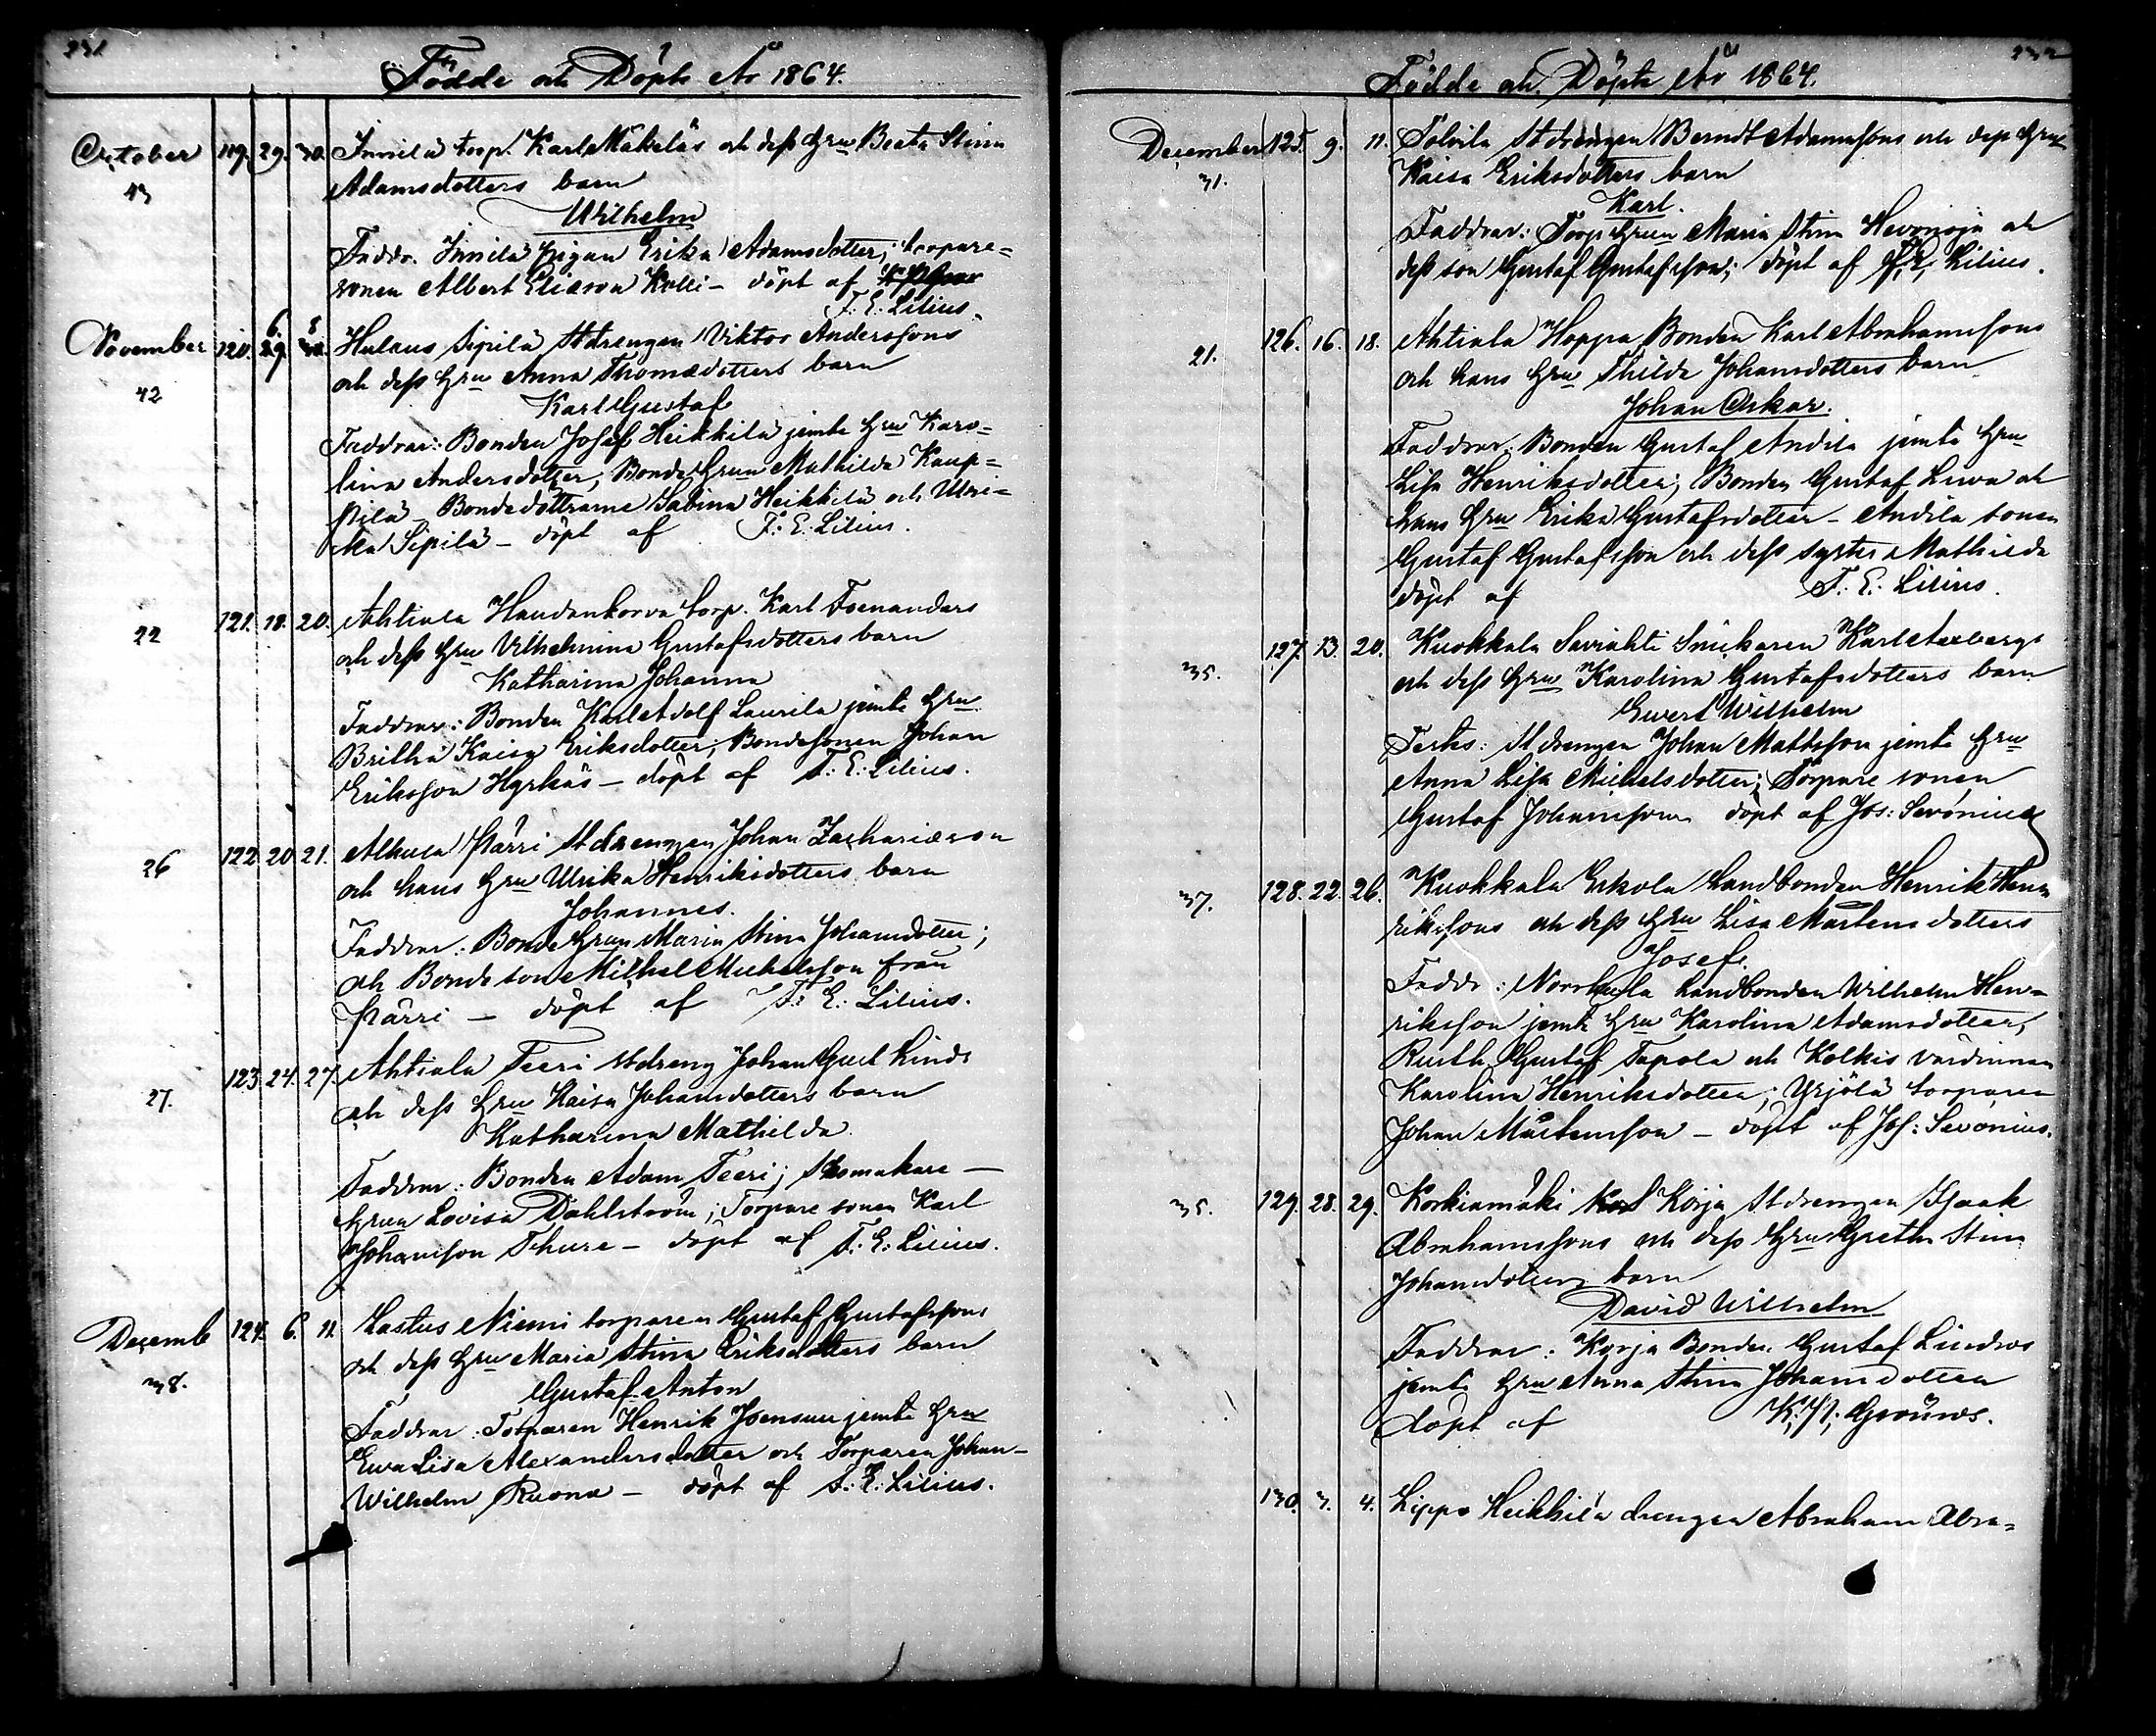 231
Födde och Döpte År 1864.
October 119. 29. 30. Innilä torp. Karl Mäkeläs och dess Hru Beata Stina
43 Adamsdotters barn
Wilhelm
Faddr. Innilä pigan Erika Adamsdotter; torpare-
sonen Albert Eliæson Kolli - döpt af
F. E. Lilius.
November 120. 6. 8. Hulaus Sipilä Stdrengen Viktor Anderssons
42 och dess Hru Anna Thomædotters barn
Karl Gustaf
Faddrar: Bonden Josef Heikkilä jemte Hru Karo-
lina Andersdotter, Bonde Hrun Mathilda Kaup-
pila Bondedöttrarne Sabina Heikkilä och Ulri-
ka Sipilä - döpt af F. E. Lilius.
22 121. 18. 20. Ahtiala Haudankorva torp. Karl Fernanders
och dess Hru Vilhelmina Gustafsdotters barn
Katharina Johanna
Faddrar: Bonden Karl Adolf Laurila jemte Hru
Britha Kaisa Eriksdotter; Bondesonen Johan
Eriksson Hyrkäs - döpt af F. E. Lilius.
26 122. 20. 21. Alhula Pärri Stdrengen Johan Zachariæson
och hans Hru Ulrika Henriksdotters barn
Johannes.
Faddrar: Bonde Hrun Maria Stina Johansdotter;
och Bondeson Mikhel Michelsson från
Pärri - döpt af F. E. Lilius.
27. 123. 24. 27. Ahtiala Teeri Stdreng Johan Gust Linds
och dess Hru Kaisa Johansdotters barn
Katharina Mathilda
Faddrar: Bonden Adam Teeri; Skomakare -
Hrun Lovisa Dahlström; Torpare sonen Karl
Johansson Thure - döpt af F. E. Lilius.
Decemb 124. 6. 11. Lastus Niemi torparen Gustaf Gustafssons
38. och dess Hru Maria Stina Eriksdotters barn
Gustaf Anton
Faddrar: Torparen Henrik Joensuu jemte Hru
Ewa Lisa Alexandersdotter och Torparen Johan-
Wilhelm Ruona - döpt af F. E. Lilius.
232
Födde och Döpte År 1864.
December 125. 9. 11. Tolvila Stdrengen Berndt Adamssons och dess Hru
31. Kaisa Eriksdotters barn
Karl.
Faddrar: Torp Hrun Maria Stina Hevonoja och
dess son Gustaf Gustafsson; döpt af F. E. Lilius.
21. 126. 16. 18. Ahtiala Hoppa Bonden Karl Abrahamssons
och hans Hru Thilda Johansdotters barn
Johan Oskar.
Faddrar: Bonden Gustaf Andila jemte Hru
Lisa Henriksdotter; Bonden Gustaf Luva och
hans Hru Erika Gustafsdotter - Andila sonen
Gustaf Gustafsson och dess syster Mathilda
döpt af F. E. Lilius.
35. 127. 13. 20. Kuokkala Saviahti Snickaren Karl Axbergs
och dess Hru Karolina Gustafsdotters barn
Ewert Wilhelm
Testes: Stdrengen Johan Mattsson jemte Hru
Anna Lisa Michelsdotter; Torpare sonen
Gustaf Johansson döpt af Jos: Serónius
37. 128. 22. 26. Kuokkala Erkola Landbonden Henrik Hen-
rikssons och dess Hru Lisa Mårtensdotters
Josef.
Faddr: Norrkyla Landbonden Wilhelm Hen-
riksson jemte Hru Karolina Adamsdotter,
Rusth. Gustaf Tapola och Kolkis värdinnan
Karolina Henriksdotter; Yrjölä torparen
Johan Mårtensson - döpt af Jos: Serónius.
35. 129. 28. 29. Korkiamäki Korja Stdrengen Isaak
Abrahamssons och dess Hru Gretha Stina
Johansdotters barn
David Wilhelm
Faddrar: Korja Bonden Gustaf Lindroos
jemte Hru Anna Stina Johansdotter
döpt af K. H. Grönros.
130. 3. 4. Lippo Heikkilä drengen Abraham Abra-